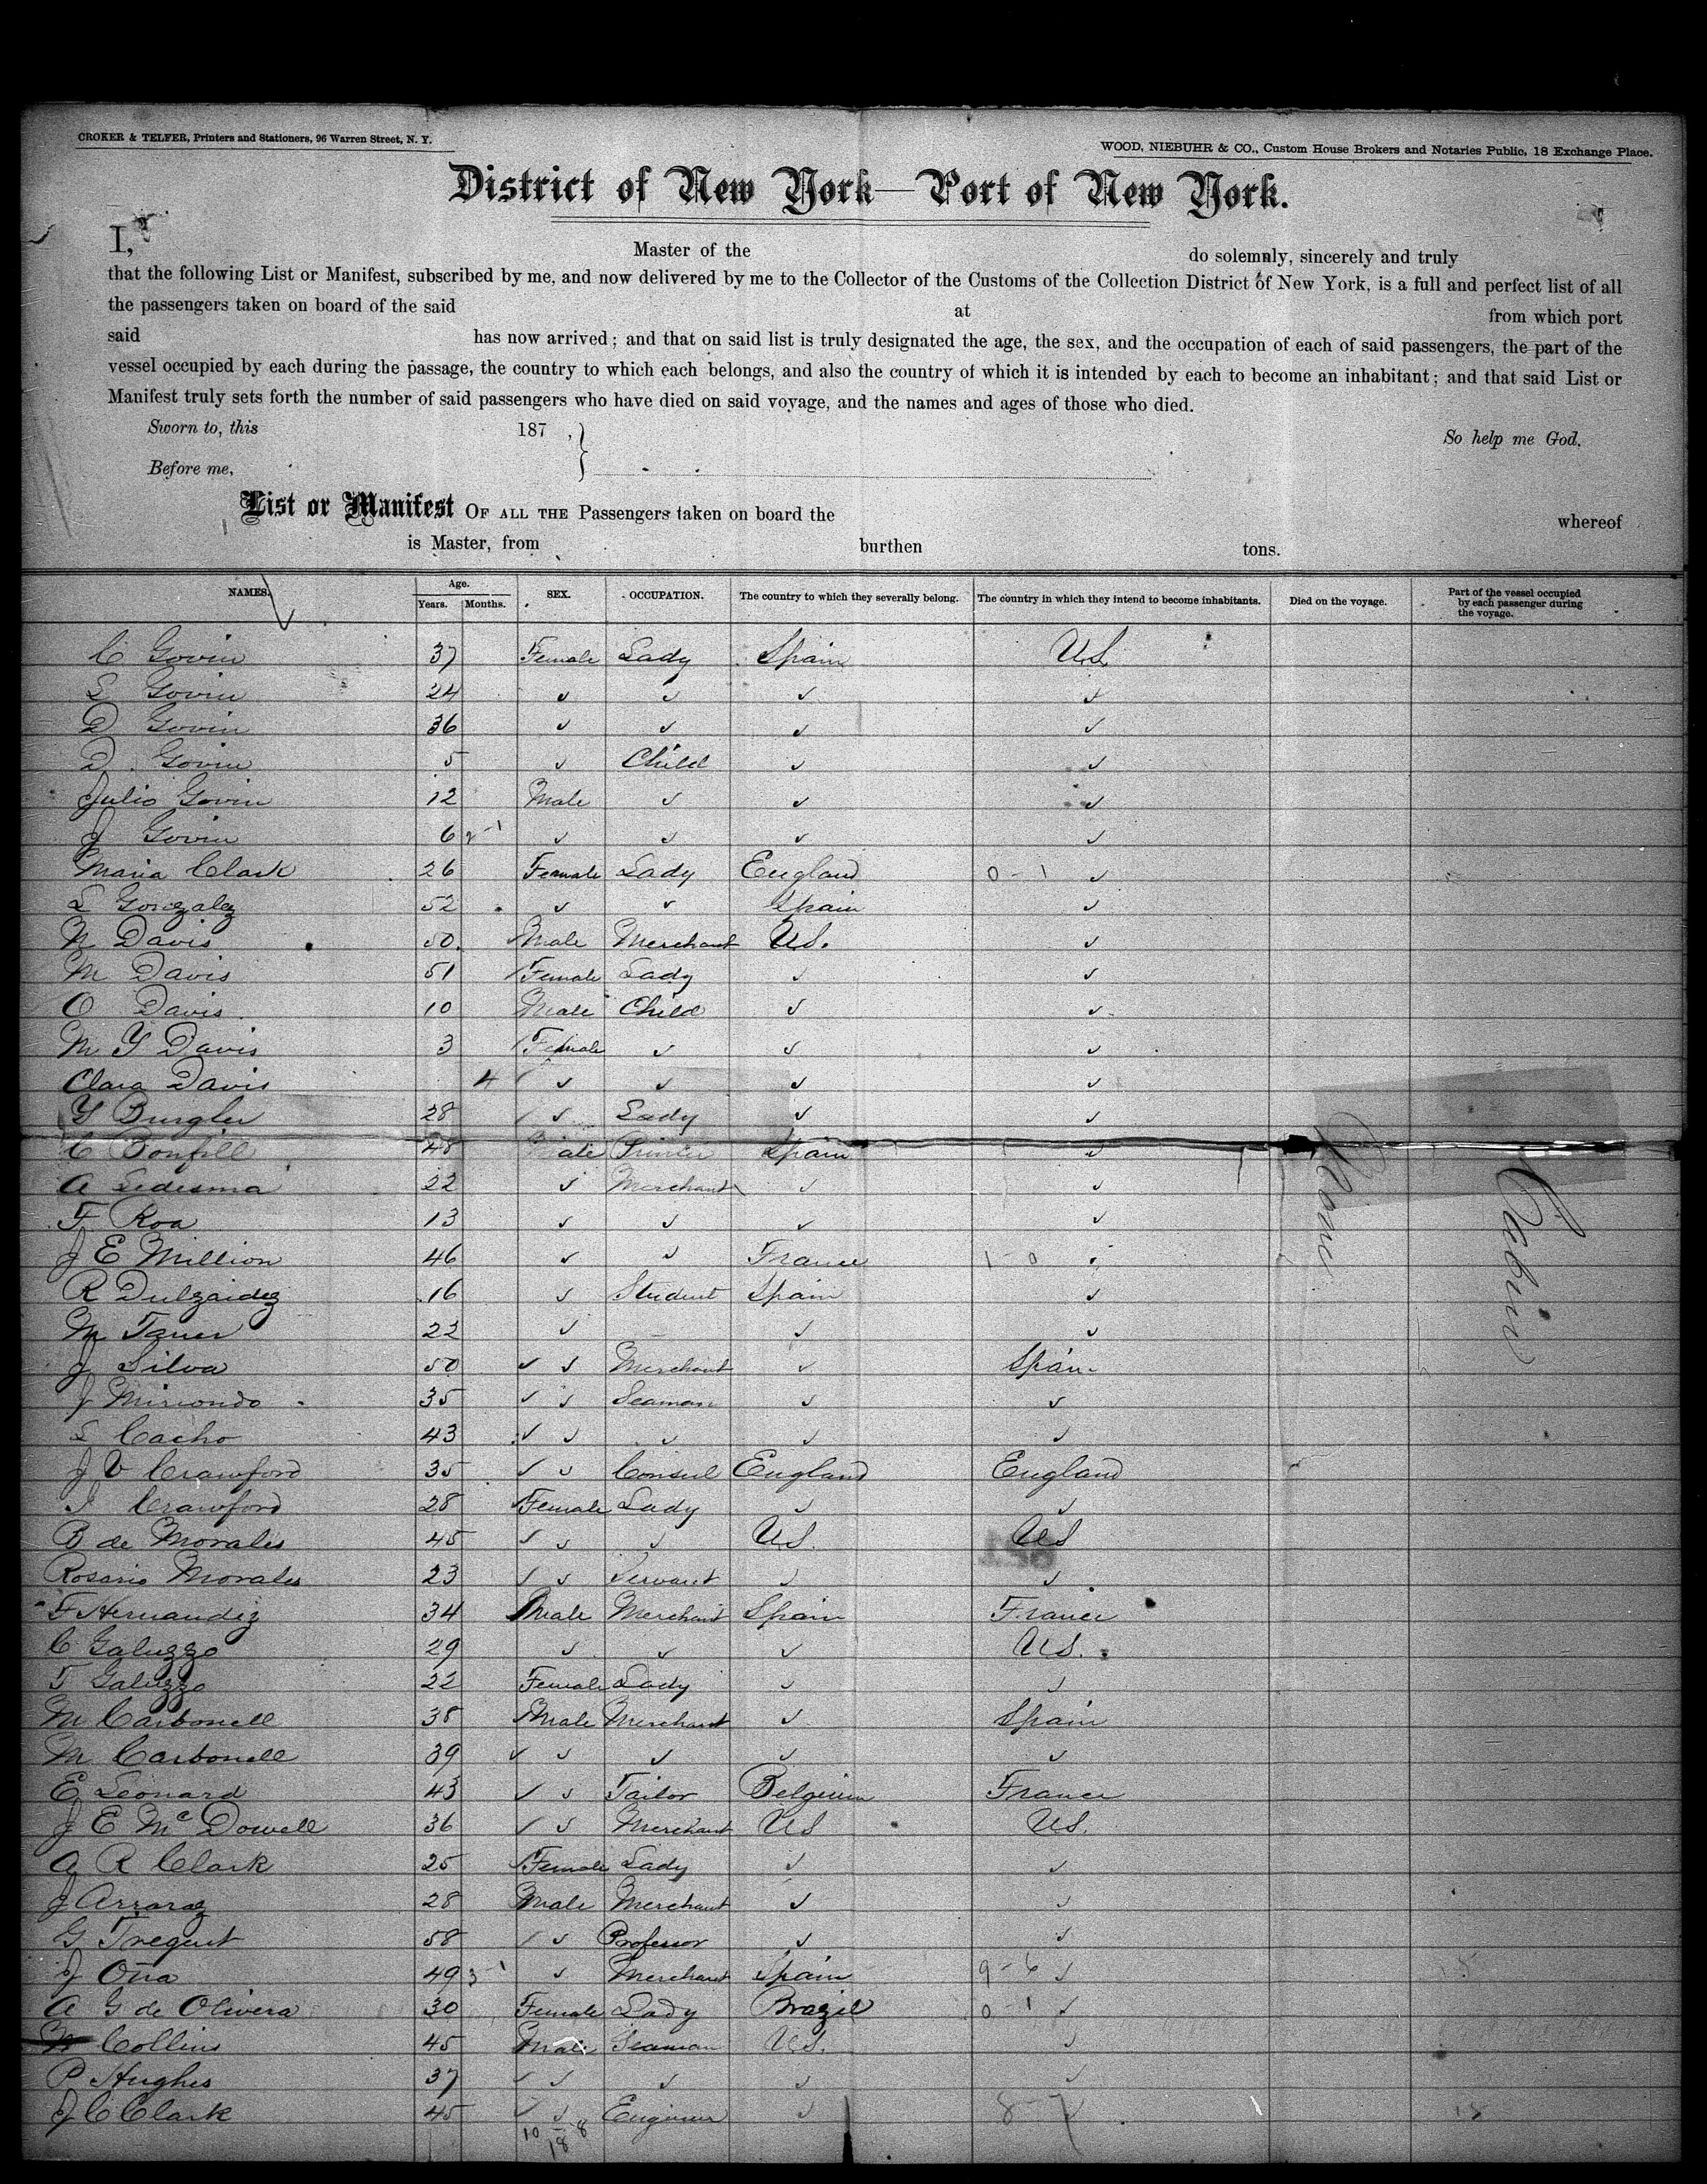 CROKER & TELFER, Printers and Stationers, 96 Warren Street, N. Y.
WOOD, NIEBUHR & CO., Custom House Brokers and Notaries Public, 18 Exchange Place.
District of New York—Port of New York.
I, Master of the do solemnly, sincerely and truly
that the following List or Manifest, subscribed by me, and now delivered by me to the Collector of the Customs of the Collection District of New York, is a full and perfect list of all
the passengers taken on board of the said at from which port
said has now arrived; and that on said list is truly designated the age, the sex, and the occupation of each of said passengers, the part of the
vessel occupied by each during the passage, the country to which each belongs, and also the country of which it is intended by each to become an inhabitant; and that said List or
Manifest truly sets forth the number of said passengers who have died on said voyage, and the names and ages of those who died.
Sworn to, this 187 , So help me God.
Before me,
List or Manifest OF ALL THE Passengers taken on board the whereof
is Master, from burthen tons.
NAMES. Age. Years. Months. SEX. OCCUPATION. The country to which they severally belong. The country in which they intend to become inhabitants. Died on the voyage. Part of the vessel occupied by each passenger during the voyage.
C Govin 37 Female Lady Spain US
L Govin 24 ✓ ✓ ✓ ✓
D Govin 36 ✓ ✓ ✓ ✓
D. Govin 5 ✓ Child ✓ ✓
Julio Govin 12 Male ✓ ✓ ✓
J Govin 6 2-1 ✓ ✓ ✓ ✓
Maria Clark 26 Female Lady England 0-1 ✓
L Gonzalez 52 ✓ ✓ Spain ✓
N Davis 50 Male Merchant US. ✓
M Davis 51 Female Lady ✓ ✓
O Davis 10 Male Child ✓ ✓
M Y Davis 3 Female ✓ ✓ ✓
Clara Davis 4 ✓ ✓ ✓ ✓
Y Burgler 28 ✓ Lady ✓ ✓
C Bonfill 48 Male Printer Spain ✓
A Ledesma 22 ✓ Merchant ✓ ✓
F Roa 13 ✓ ✓ ✓ ✓
J E Million 46 ✓ ✓ France 1-0 ✓
R Dulzaidez 16 ✓ Student Spain ✓
M Taner 22 ✓ ✓ ✓
J Silva 50 ✓ ✓ Merchant ✓ Spain
J Miriondo 35 ✓ ✓ Seaman ✓ ✓
L Cacho 43 ✓ ✓ ✓ ✓ ✓
J V Crawford 35 ✓ ✓ Consul England England
I Crawford 28 Female Lady ✓ ✓
B de Morales 45 ✓ ✓ ✓ US. US
Rosario Morales 23 ✓ ✓ Servant ✓ ✓
F Hernandez 34 Male Merchant Spain France
C Galuzzo 29 ✓ ✓ ✓ US.
T Galuzzo 22 Female Lady ✓ ✓
M Carbonell 38 Male Merchant ✓ Spain
M Carbonell 39 ✓ ✓ ✓ ✓ ✓
E Leonard 43 ✓ ✓ Tailor Belgium France
J E McDowell 36 ✓ ✓ Merchant US US.
A R Clark 25 Female Lady ✓ ✓
J Arraraz 28 Male Merchant ✓ ✓
G Tregent 58 ✓ ✓ Professor ✓ ✓
J Oña 49 3-1 ✓ Merchant Spain 9-6 ✓ 15
A G de Olivera 30 Female Lady Brazil 0-1 ✓
Collins 45 Male Seaman US. ✓
P Hughes 37 ✓ ✓ ✓ ✓ ✓
J C Clark 45 ✓ ✓ Engineer ✓ 8-7 ✓ 15
10-8
18
None
Cabin